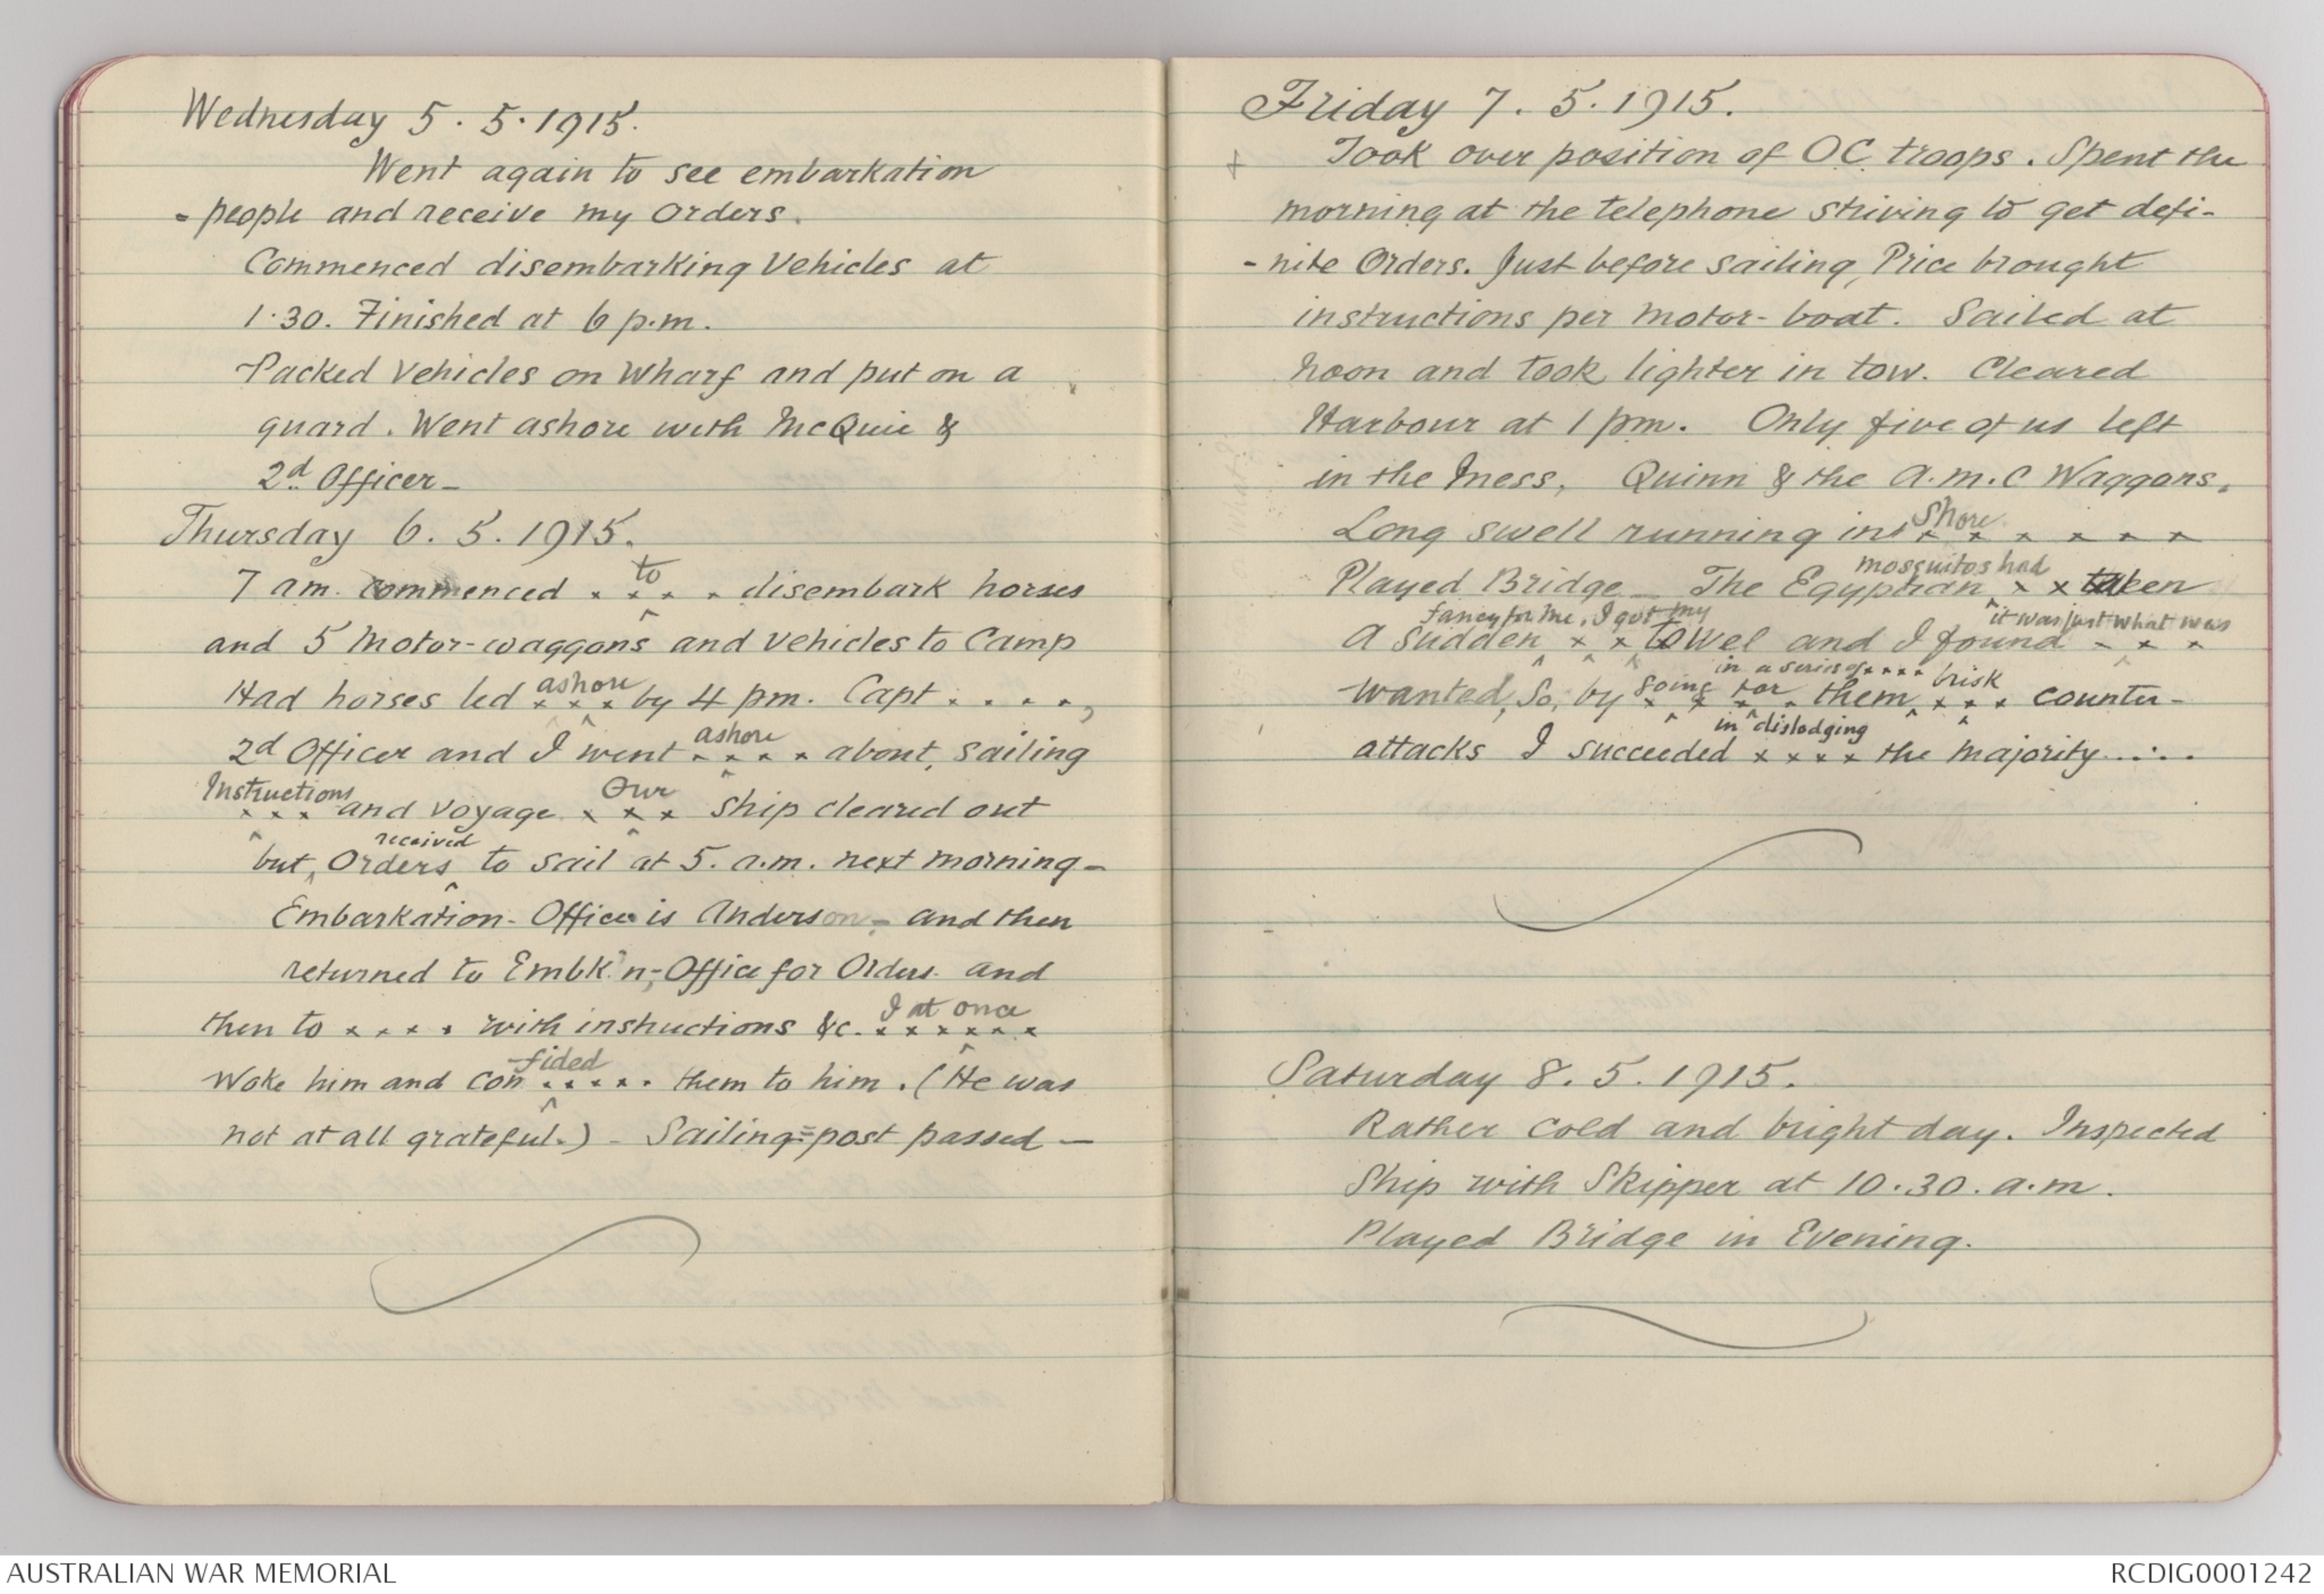 Wednesday 5. 5. 1915.
Went again to see embarkation
- people and receive my Orders.
Commenced disembarking Vehicles at
1.30. Finished at 6 p.m.
Packed Vehicles on Wharf and put on a
guard. Went ashore with McQuie &
2d Officer_
Thursday 6. 5. 1915.
to
7 am. commenced x x x . disembark horses
and 5 Motor-waggons and vehicles to Camp
ashore
Had horses led x x x by 4 pm. Capt . . . .,
ashore
2d Officer and I went x x x x about, sailing
Instructions Our
x x x and voyage x x x ship cleared out
received
but, Orders, to sail at 5. a.m. next morning_
Embarkation-Office is Anderson_ and then
returned to Embk'n,-Office for Orders and
I at once
then to x x x x with instructions &c. x x x x x x
-fided
Woke him and con x x x x . them to him. (He was
not at all grateful.) - Sailing=post passed _
Friday 7. 5. 1915.
+ Took over position of OC troops. Spent the
morning at the telephone striving to get defi-
- nite Orders. Just before sailing, Price brought
instructions per motor-boat. Sailed at
noon and took lighter in tow. Cleared
Harbour at 1 pm. Only five of us left
in the Mess, Quinn & the A.M.C Waggons.
Shore
Long swell running in x x x x x x
mosquitos had
Played Bridge _ The Egyptian x x taken
fancy for me, I got my it was just what was
a sudden x x towel and I found - x x
in a series of x x x x brisk
going for
wanted, So, by x x x . them x x x counter-
in dislodging
attacks I succeeded x x x x the majority . . . . .
Saturday 8. 5. 1915.
Rather cold and bright day. Inspected
Ship with Skipper at 10.30. a.m.
Played Bridge in Evening.
AUSTRALIAN WAR MEMORIAL
RCDIG0001242